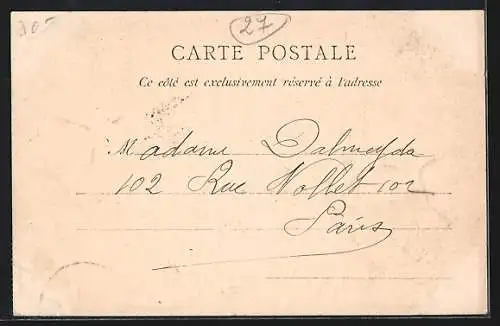 30-
27
CARTE POSTALE
Ce côté est exclusivement réservé à l'adresse
Madame Dalmeyda
102 Rue Nollet 102
Paris